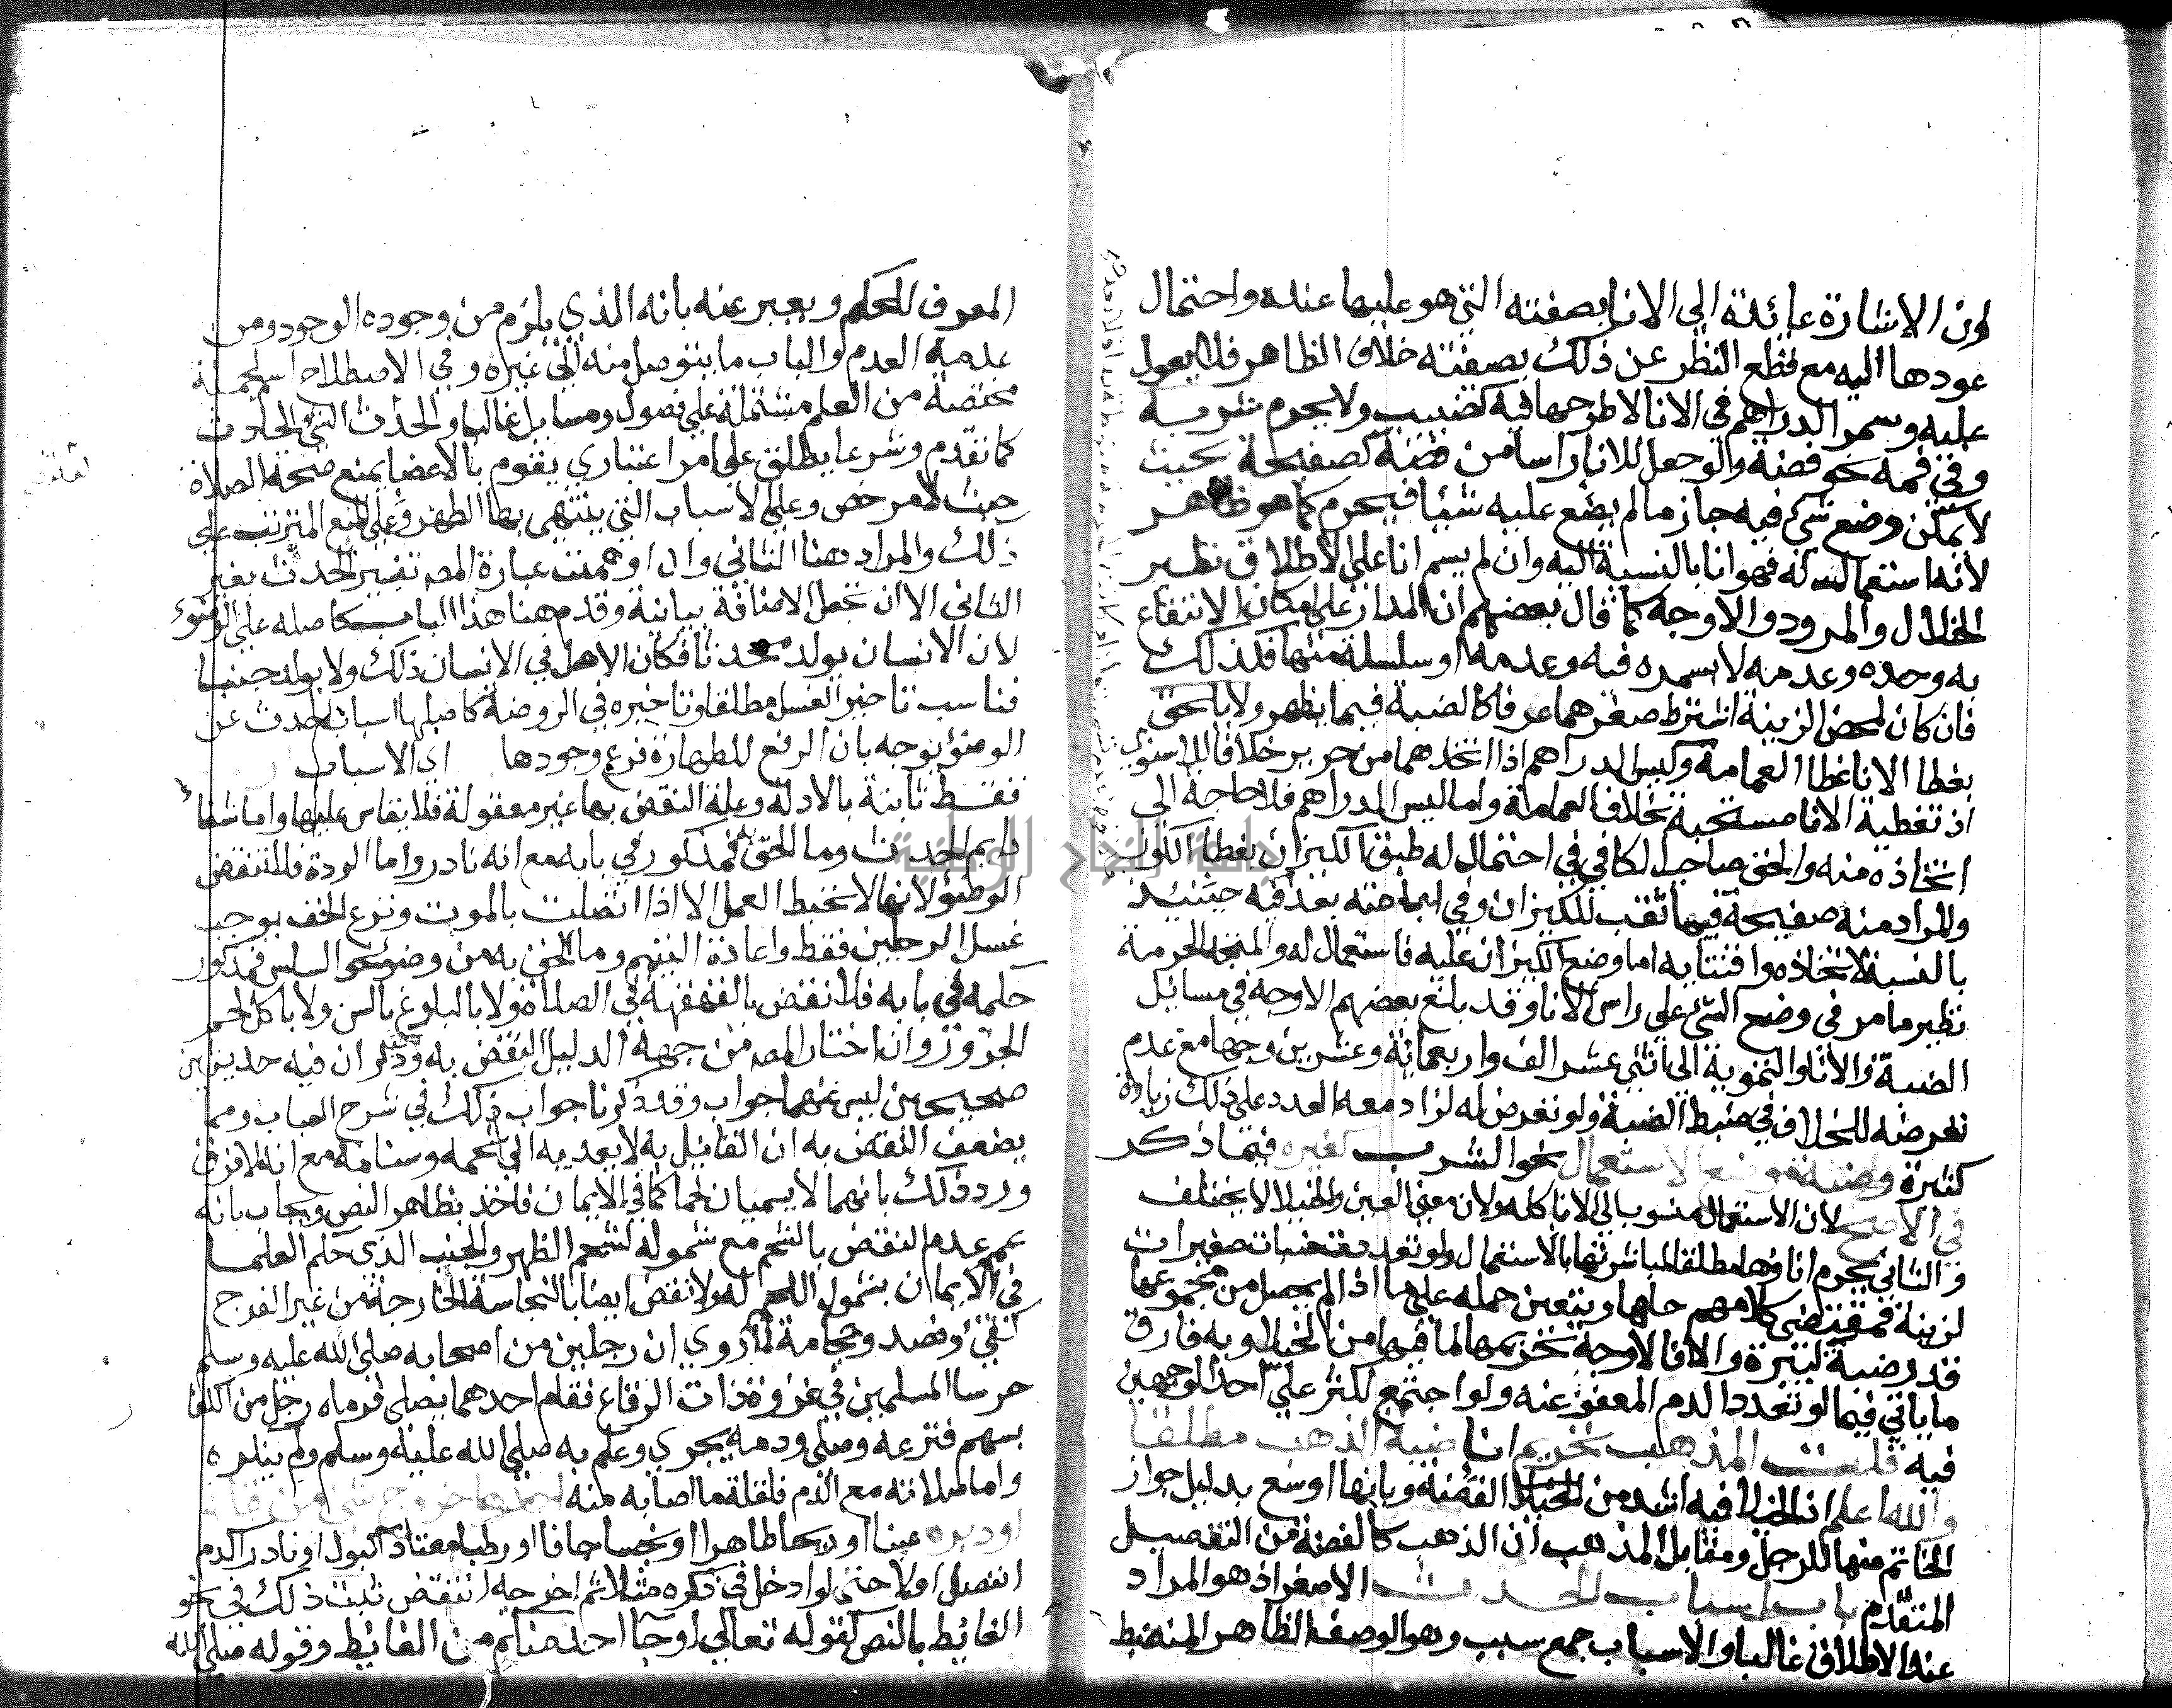 لان الاشارة عائدة الى الانا بصفته التي هو عليها عنده واحتمال
عودها اليه مع قطع النظر عن ذلك بصفته خلاف الظاهر فلا يعول
عليه وسمر الدراهم في الانا لا طرحها فيه كضبيب ولا يحرم شربه
وفي فمه نحو فضة ولو جعل للانا راسا من فضة كصفيحة بحيث
لا يمكن وضع شي فيه جاز ما لم يضع عليه شيئا فيحرم كما هو ظاهر
لانه استعمال له فهو انا بالنسبة اليه وان لم يسم انا على الاطلاق نظير
الخلال والمرود والاوجه كما قال بعضهم ان المدار على امكان الانتفاع
به وحده وعدمه لا بسمره فيه وعدمه او سلسلة منها فكذلك
فان كان لمحض الزينة اشترط صغرهما عرفا كالضبة فيما يظهر ولا يلحق
بغطا الانا غطا العمامة وكيس الدراهم اذا اتخذهما من حرير خلافا للاسنوي
اذ تغطية الانا مستحبة بخلاف العمامة واما كيس الدراهم فلا حاجة الى
اتخاذه منه والحق صاحب الكافي في احتمال له طبق الكيزان بغطا الكوز
والمراد منه صفيحة فيها ثقب للكيزان وفي اباحته بعد فيه حينئذ
بالنسبة لاتخاذه واقتنايه اما وضع الكيزان عليه فاستعمال له والمتجه الحرمة
نظير ما مر في وضع الشي على راس الانا وقد بلغ بعضهم الاوجه في مسائل
الضبة والانا والتمويه الى اثني عشر الف واربعمائة وعشرين وجها مع عدم
تعرضه للخلاف في ضبط الضبة ولو تعرض له لزاد معه العدد على ذلك زيادة
كثيرة وضبة موضع الاستعمال نحو الشرب كغيره فيما ذكر
في الاصح لان الاستعمال منسوب الى الانا كله ولان معنى العين والخيلا لا يختلف
والثاني يحرم اناوها مطلقا لمباشرتها بالاستعمال ولو تعددت ضبات صغيرات
لزينة فمقتضى كلامهم حلها ويتعين حمله على ما اذا لم يحصل من مجموعها
قدر ضبة كبيرة والا فالاوجه تحريمها لما فيها من الخيلا وبه فارق
ما ياتي فيما لو تعدد الدم المعفو عنه ولو اجتمع لكثر على احد الوجهين
فيه قلت المذهب تحريم انا ضبة الذهب مطلقا
والله اعلم لان الخيلا فيه اشد من الفضة وبانها اوسع بدليل جواز
الخاتم منها للرجل ومقابل المذهب ان الذهب كالفضة من التفصيل
المتقدم باب اسباب الحدث الاصغر اذ هو المراد
عند الاطلاق غالبا والاسباب جمع سبب وهو الوصف الظاهر المنضبط
المعرف للحكم ويعبر عنه بانه الذي يلزم من وجوده الوجود ومن
عدمه العدم والباب ما يتوصل منه الى غيره وفي الاصطلاح اسم لجملة
مختصة من العلم مشتملة على فصول ومسايل غالبا والحدث الشي الحادث
كما تقدم وشرعا يطلق على امر اعتباري يقوم بالاعضا يمنع صحة الصلاة
حيث لا مرخص وعلى الاسباب التي ينتهي بها الطهر وعلى المنع المترتب على
ذلك والمراد هنا الثاني وان اوهمت عبارة المص تفسير الحدث بغير
الثاني الا ان تجعل الاضافة بيانية وقدم هنا هذا الباب كاصله على الوضوء
لان الانسان يولد محدثا فكان الاصل في الانسان ذلك ولا يولد جنبا
فناسب تاخير الغسل مطلقا وتاخيره في الروضة كاصلها اسباب الحدث عن
الوضوء يوجه بان الرفع للطهارة فرع وجودها اي الاسباب
فقط ثابتة بالادلة وعلة النقض بها غير معقولة فلا يقاس عليها واما شفا
دايم الحدث وما الحق به فمذكور في بابه مع انه نادر واما الردة فلا تنقض
الوضوء لانها لا تحبط العمل الا اذا اتصلت بالموت ونزع الخف يوجب
غسل الرجلين فقط واعادة التيمم وما الحق به من وضوء نحو السلس فمذكور
حكمه في بابه فلا نقض بالقهقهة في الصلاة ولا بالبلوغ بالسن ولا باكل لحم
الجزور وان اختار المص من جهة الدليل النقض به وذكر ان فيه حديثين
صحيحين ليس عنهما جواب وقد ذكرنا جواب ذلك في شرح العباب ومما
يضعف النقض به ان القائل به لا يعديه الى شحمه وسنامه مع انه لا فرق
ورد ذلك بانهما لا يسميان لحما كما في الايمان فاخذ بظاهر النص ويجاب بانه
عم عدم النقض بالشحم مع شموله لشحم الظهر والجنب الذي حكم العلما
في الايمان بشمول اللحم له ولا نقض ايضا بالنجاسة الخارجة من غير الفرج
كقي وفصد وحجامة لما روي ان رجلين من اصحابه صلى الله عليه وسلم
حرسا المسلمين في غزوة ذات الرقاع فقام احدهما يصلي فرماه رجل من الكفار
بسهم فنزعه وصلى ودمه يجري وعلم به صلى الله عليه وسلم ولم ينكره
واما صلاته مع الدم فلقلة ما اصابه منه احدها خروج شي من قبله
او دبره عينا او ريحا طاهرا او نجسا جافا او رطبا معتادا كبول او نادرا كدم
انفصل او لا حتى لو ادخل في ذكره مثلا ثم اخرجه انتقض ثبت ذلك في نحو
الغايط بالنص كقوله تعالى او جا احد منكم من الغايط وقوله صلى الله